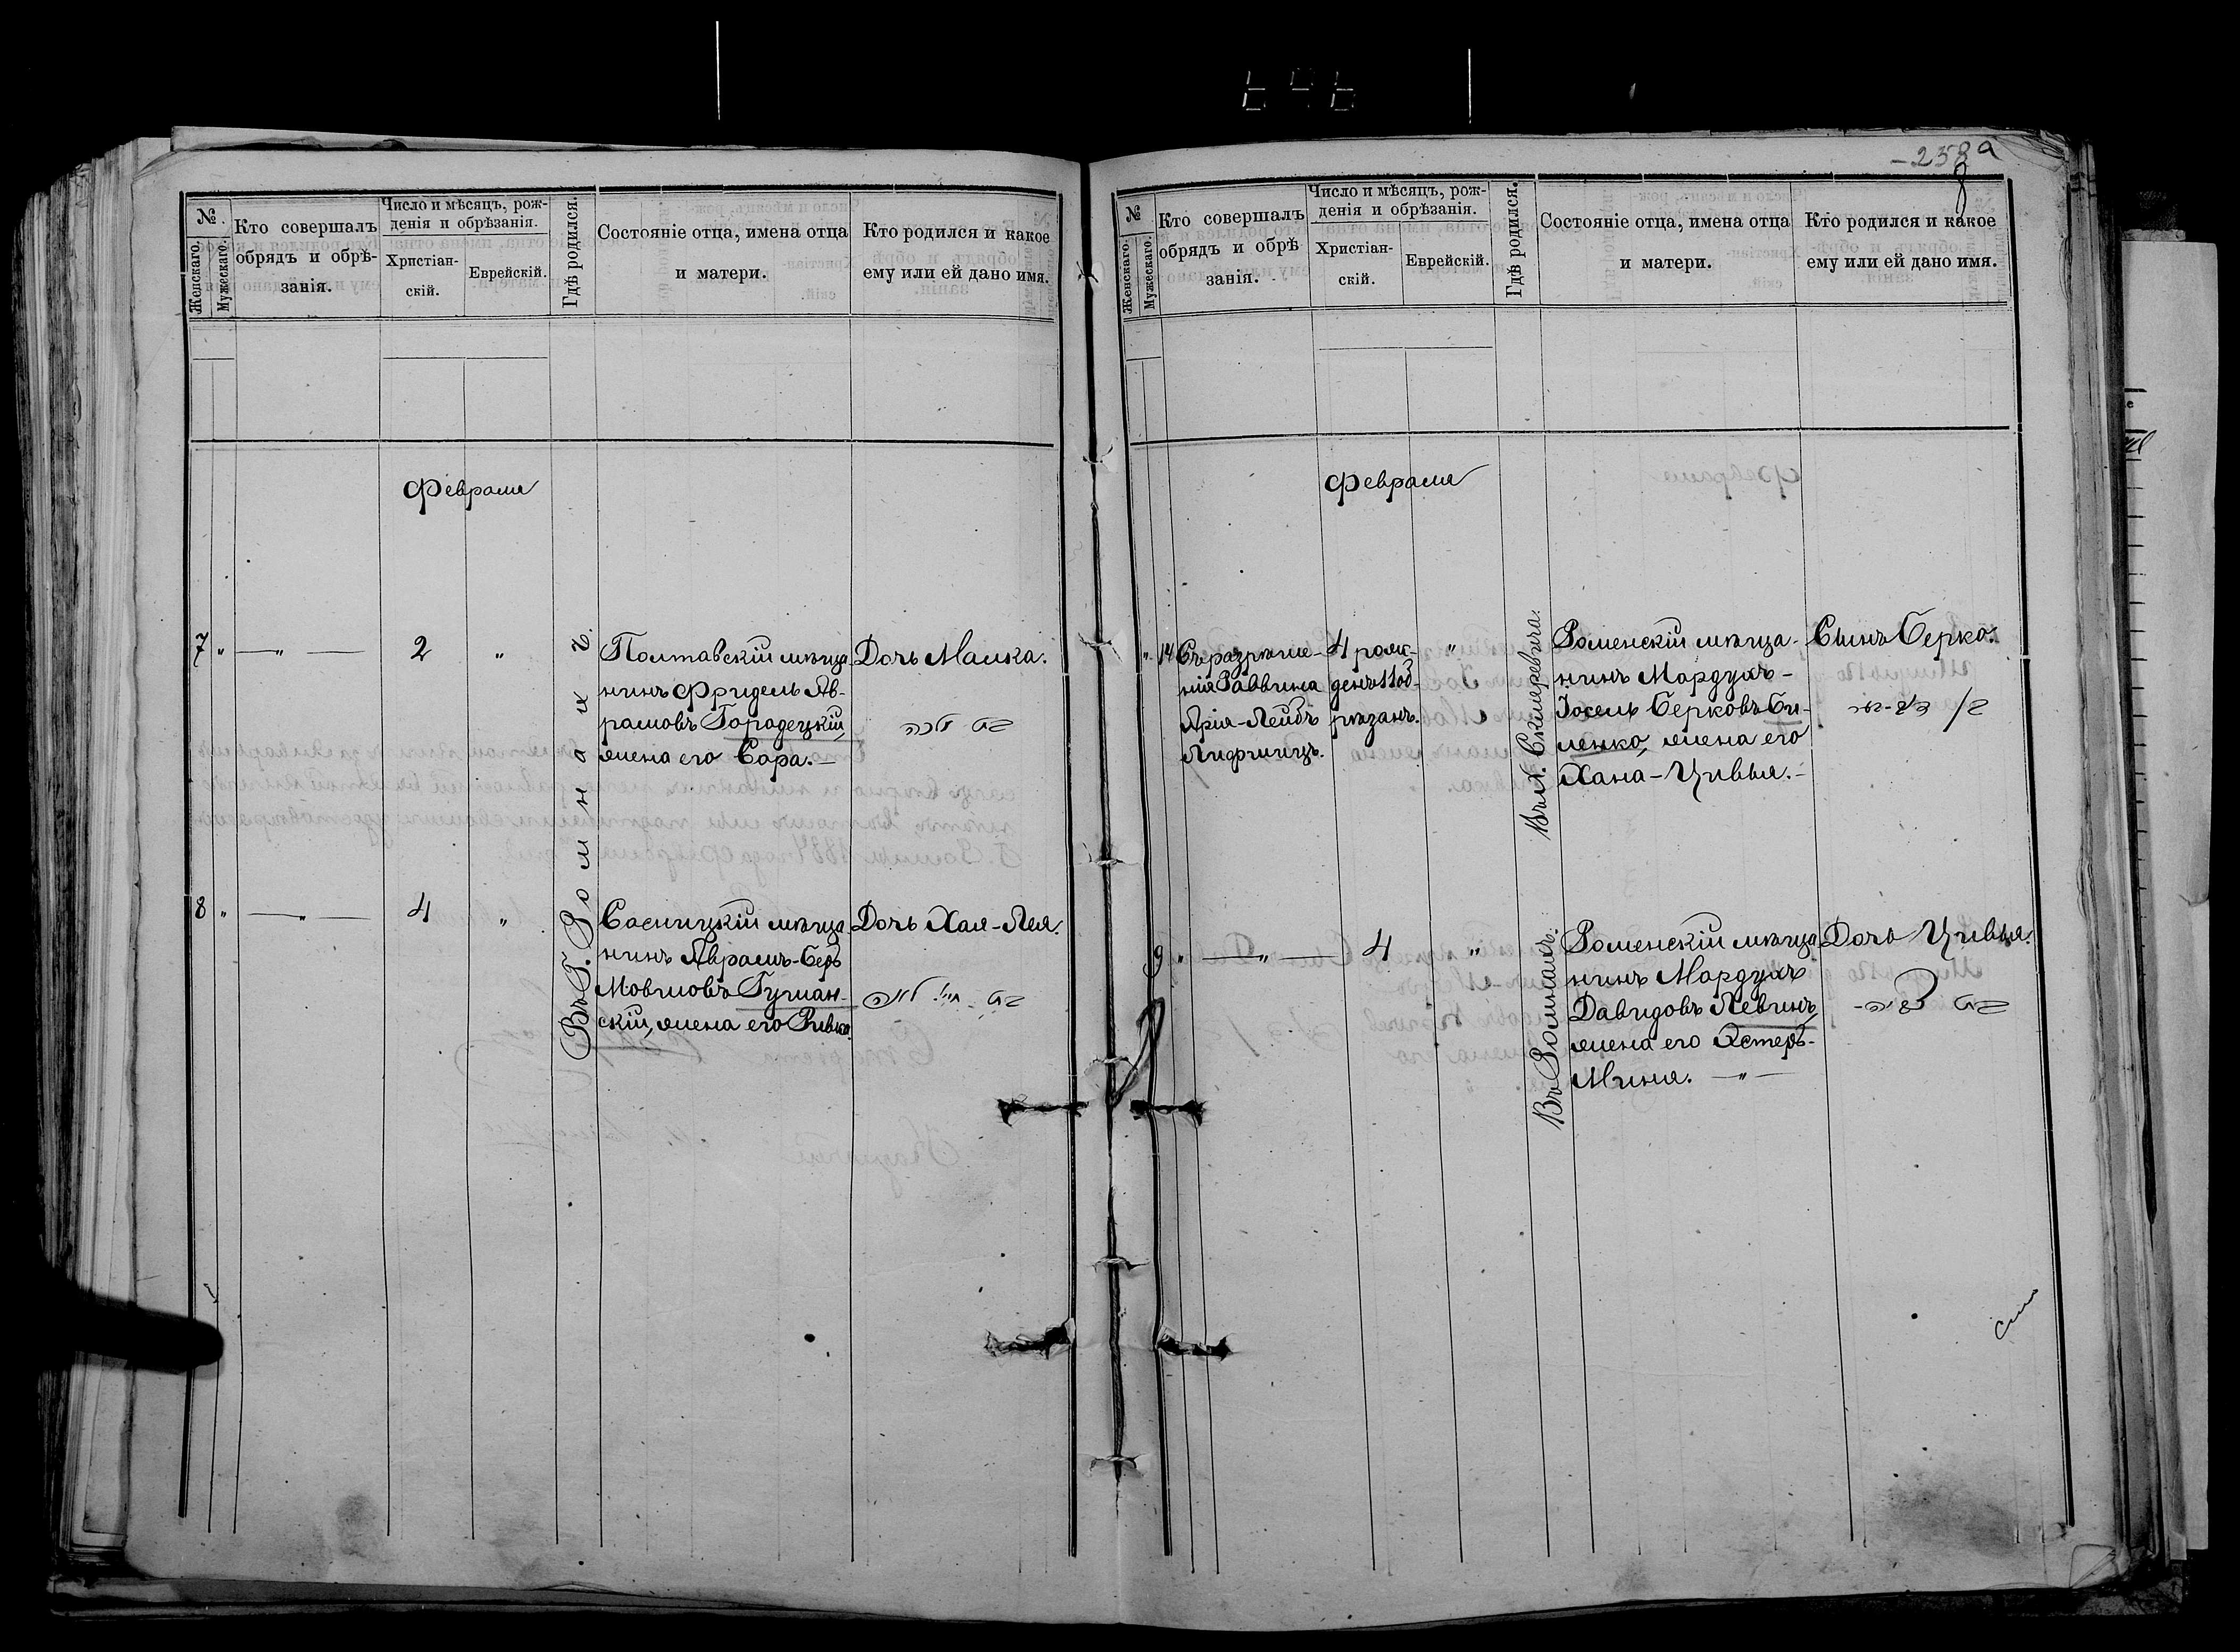 №
Женскаго.
Мужескаго.
Кто совершалъ
обрядъ и обрѣ-
занія.
Число и мѣсяцъ, рож-
денія и обрѣзанія.
Христіан-
скій.
Еврейскій.
Гдѣ родился.
Состояніе отца, имена отца
и матери.
Кто родился и какое
ему или ей дано имя.
Февраля
7 " — " — 2 "
Въ Г. Ромнахъ.
Полтавскій мѣща-
нинъ Фридель Ав-
рамовъ Городецкій,
жена его Сара. —
Дочь Малка.
בת מלכה
8 " — " — 4 "
Сосницкій мѣща
нинъ Аврамъ-Беръ
Мовшовъ Гушан-
скій, жена его Ривка.
Дочь Хая-Лея.
בת - חיי' לאה
258а
8
№
Женскаго.
Мужескаго.
Кто совершалъ
обрядъ и обрѣ
занія.
Число и мѣсяцъ, рож-
денія и обрѣзанія.
Христіан-
скій.
Еврейскій.
Гдѣ родился.
Состояніе отца, имена отца
и матери.
Кто родился и какое
ему или ей дано имя.
Февраля
" 14
Съ разрѣше-
нія Раввина
Арія-Лейбъ
Лифшицъ.
4 рож-
денъ 11 об-
рѣзанъ.
"
Въ м. Смѣлеревича.
Роменскій мѣща-
нинъ Мордухъ-
Іосель Берковъ Си-
ленко, жена его
Хана-Цивья. —
Сынъ Берко.
9 " — " — 4 "
Въ Ромнахъ.
Роменскій мѣща
нинъ Мордухъ
Давидовъ Левинъ,
жена его Эстеръ-
Миня. — " —
Дочь Цивья.
בת צביה -